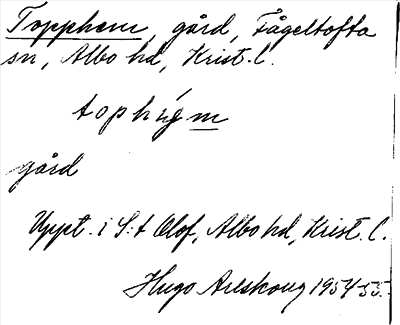 Topphem, gård, Fågeltofta
sn, Albo hd, Krist. l.
gård
Uppt. i S:t Olof, Albo hd, Krist. l.
Hugo Areskoug 1954-55.